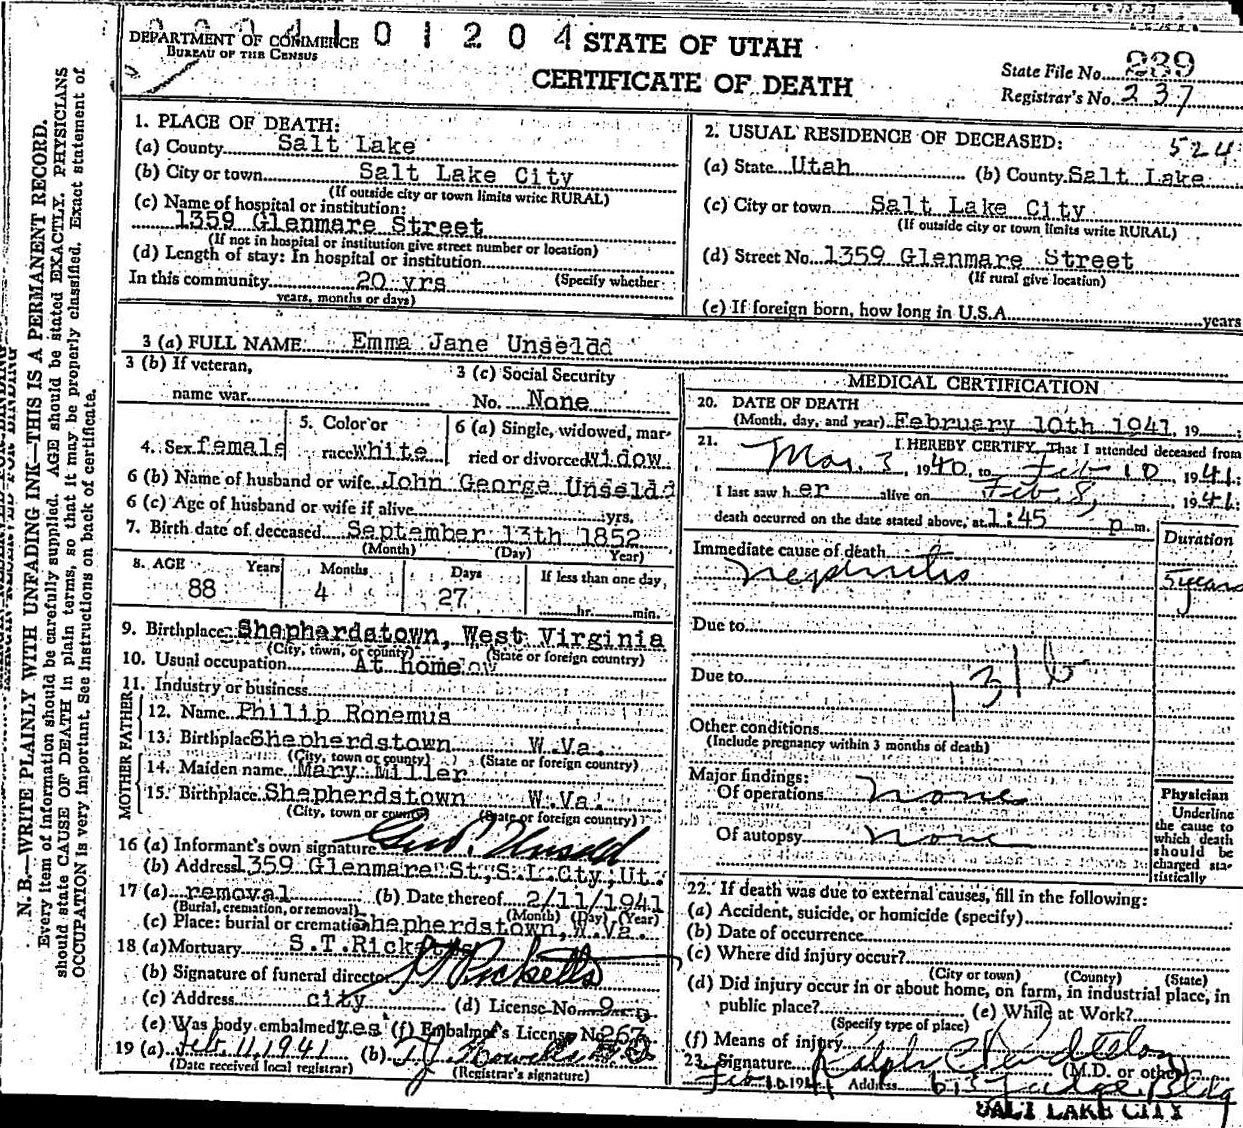 DEPARTMENT OF COMMERCE
BUREAU OF THE CENSUS
0 1 2 0 4
STATE OF UTAH
CERTIFICATE OF DEATH
State File No. 239
Registrar's No. 237
N. B.—WRITE PLAINLY WITH UNFADING INK—THIS IS A PERMANENT RECORD.
Every item of information should be carefully supplied. AGE should be stated EXACTLY. PHYSICIANS
should state CAUSE OF DEATH in plain terms, so that it may be properly classified. Exact statement of
OCCUPATION is very important. See Instructions on back of certificate.
1. PLACE OF DEATH:
(a) County Salt Lake
(b) City or town Salt Lake City
(If outside city or town limits write RURAL)
(c) Name of hospital or institution:
1359 Glenmare Street
(If not in hospital or institution give street number or location)
(d) Length of stay: In hospital or institution
In this community 20 yrs (Specify whether
years, months or days)
2. USUAL RESIDENCE OF DECEASED: 524
(a) State Utah (b) County Salt Lake
(c) City or town Salt Lake City
(If outside city or town limits write RURAL)
(d) Street No. 1359 Glenmare Street
(If rural give location)
(e) If foreign born, how long in U.S.A. years
3 (a) FULL NAME Emma Jane Unseldd
3 (b) If veteran,
name war
3 (c) Social Security
No. None
4. Sex female
5. Color or
race white
6 (a) Single, widowed, mar-
ried or divorced widow
6 (b) Name of husband or wife John George Unseldd
6 (c) Age of husband or wife if alive yrs.
7. Birth date of deceased September 13th 1852
(Month) (Day) Year)
8. AGE Years Months Days If less than one day,
88 4 27 hr. min.
9. Birthplace Shephardstown, West Virginia
(City, town, or county) (State or foreign country)
10. Usual occupation At home
11. Industry or business
FATHER
12. Name Philip Ronemus
13. Birthplace Shepherdstown W.Va.
(City, town or county) (State or foreign country)
MOTHER
14. Maiden name Mary Miller
15. Birthplace Shepherdstown W.Va.
(City, town or county) (State or foreign country)
16 (a) Informant's own signature Unseld
(b) Address 1359 Glenmare St., S.L.Cty, Ut.
17 (a) removal (b) Date thereof 2/11/1941
(Burial, cremation, or removal) (Month) (Day) (Year)
(c) Place: burial or cremation Shepherdstown, W.Va.
18 (a) Mortuary S.T.Ricketts
(b) Signature of funeral director Ricketts
(c) Address city (d) License No. 9
(e) Was body embalmed yes (f) Embalmer's License No. 263
19 (a) Feb. 11, 1941 (b)
(Date received local registrar) (Registrar's signature)
MEDICAL CERTIFICATION
20. DATE OF DEATH
(Month, day, and year) February 10th 1941, 19 ;
21. I HEREBY CERTIFY, That I attended deceased from
Mar. 3, 1940, to Feb 10, 1941:
I last saw her alive on Feb 8, 1941:
death occurred on the date stated above, at 1:45 p m.
Duration
Immediate cause of death
nephritis 5 years
Due to
Due to 131 b
Other conditions
(Include pregnancy within 3 months of death)
Major findings:
Of operations none
Of autopsy none
Physician
Underline
the cause to
which death
should be
charged sta-
tistically
22. If death was due to external causes, fill in the following:
(a) Accident, suicide, or homicide (specify)
(b) Date of occurrence
(c) Where did injury occur?
(City or town) (County) (State)
(d) Did injury occur in or about home, on farm, in industrial place, in
public place? (e) While at Work?
(Specify type of place)
(f) Means of injury
23. Signature Ralph C Pendleton
(M.D. or other)
Feb 10 1941 Address 613 Judge Bldg
SALT LAKE CITY